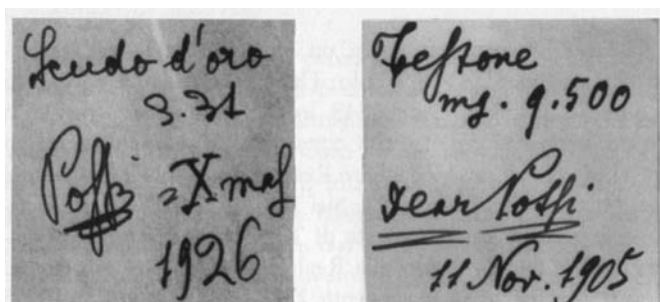 Scudo d'oro
3.31
Possi = Xmas
1926
Testone
mg. 9.500
Dear Possi
11 Nov. 1905